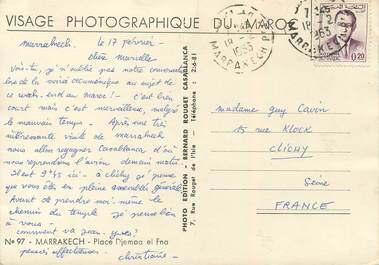 VISAGE PHOTOGRAPHIQUE DU MAROC
Marrakech. le 17 février -
chère Marcelle
Vois-tu, je n'oublie pas notre conversation
lors de la soirée œcuménique au sujet de
ce week-end au maroc! - c'est bien
court mais c'est merveilleux, malgré
le mauvais temps - Après une très
intéressante visite de marrakech
nous allons regagner Casablanca d'où
nous reprendrons l'avion demain matin.
Il est 9h45 ici - à clichy je pense
que vous êtes en pleine assemblée générale
Avant de prendre moi-même le
chemin du temple je pense bien
à vous -
comment va Jean-Yves?
pensées affectueuses
christiane -
No 97 - MARRAKECH - Place Djemaa el Fna
PHOTO EDITION - BERNARD ROUGET CASABLANCA
7, Rue Rouget de l'Isle Téléphone 2-6-81
1963
MARRAKECH
1963
MARRAKECH
0,20
madame Guy Cavin
15 rue KLOCK
CLICHY
Seine
FRANCE